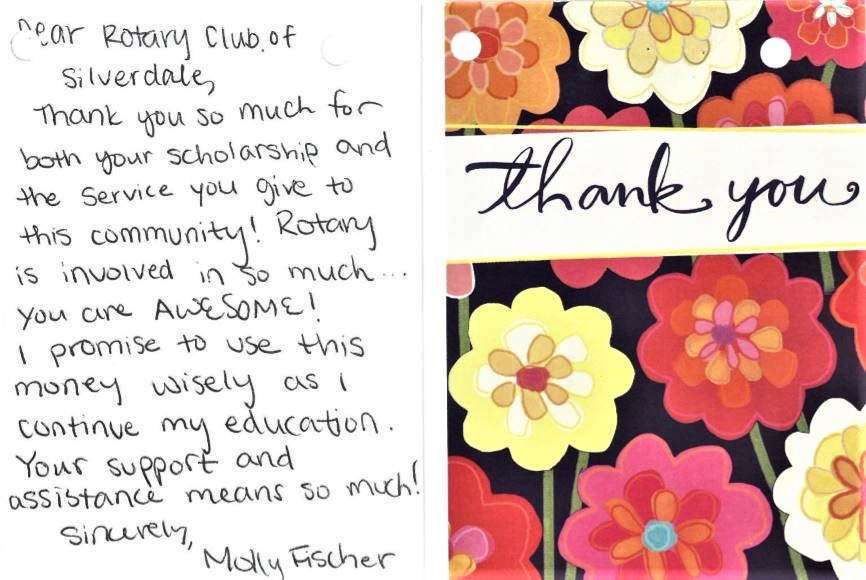 Dear Rotary Club of
Silverdale,
Thank you so much for
both your scholarship and
the service you give to
this community! Rotary
is involved in so much...
you are AWESOME!
I promise to use this
money wisely as I
continue my education.
Your support and
assistance means so much!
Sincerely,
Molly Fischer
thank you